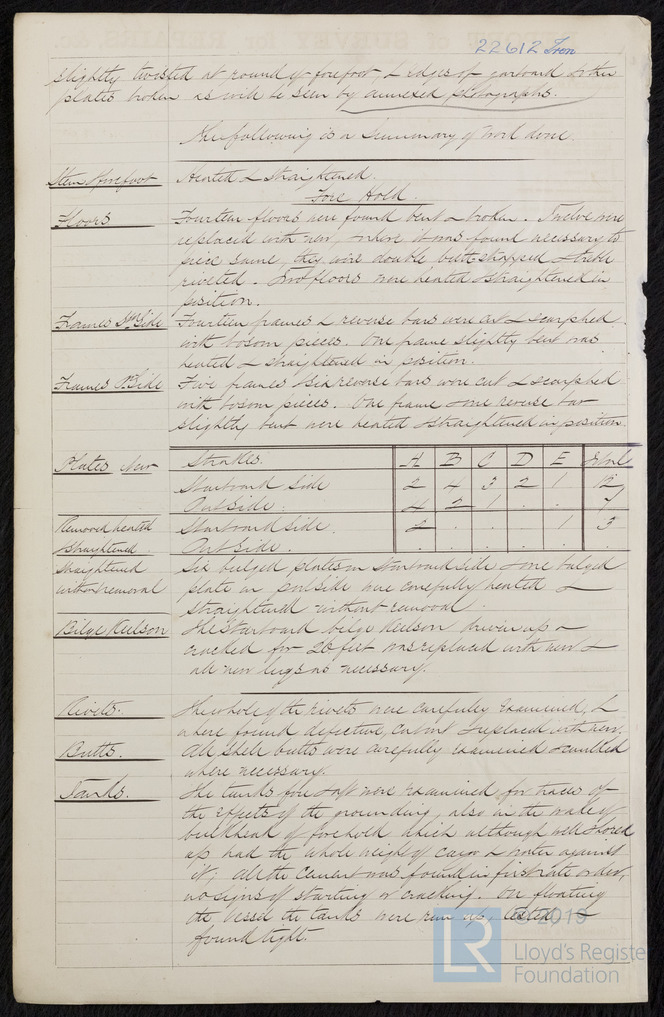 22612 Iron
slightly twisted at round of forefoot, & edges of garboard & other
plates broken as will be seen by annexed photographs.
The following is a Summary of work done.
Stem forefoot Heated & straightened.
Fore Hold.
Floors Fourteen floors were found bent & broken. Twelve were
replaced with new, & where it was found necessary to
piece same, they were double butt strapped & treble
riveted. Two floors were heated & straightened in
position.
Frames Side Fourteen frames & reverse bars were cut & scarphed
with bosom pieces. One frame slightly bent was
heated & straightened in position.
Frames Side Five frames & six reverse bars were cut & scarphed
with bosom pieces. One frame & one reverse bar
slightly bent were heated & straightened in position.
Plates New Strakes. A B C D E Total
Starboard Side 2 4 3 2 1 12
Port Side. 4 2 1 . . 7
Removed heated Starboard Side. 2 . . . 1 3
& straightened. Port Side. . . . . . .
Straightened Six bulged plates on Starboard Side & one bulged
without removal plate on port Side were carefully heated &
straightened without removal.
Bilge Keelson The Starboard bilge keelson driven up &
cracked for 26 feet was replaced with new &
all new lugs as necessary.
Rivets. The whole of the rivets were carefully examined, &
where found defective, cut out & replaced with new.
Butts. All shell butts were carefully examined & caulked
where necessary.
Tanks. The tanks fore & aft were examined for traces of
the effects of the grounding, also in the wake of
bulkhead of forehold which although well shored
up had the whole weight of cargo & water against
it; all the cement was found in first rate order,
no signs of starting or cracking. On floating
the vessel the tanks were run up, tested &
found tight.
© 2019
LR
Lloyd's Register
Foundation